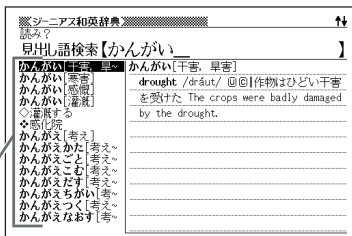 ジーニアス和英辞典
読み?
見出し語検索【かんがい__ 】
かんがい[干害, 旱~
かんがい[寒害]
かんがい[感慨]
かんがい[灌漑]
◇灌漑する
❖感化院
かんがえ[考え]
かんがえかた[考え~
かんがえごと[考え~
かんがえこむ[考え~
かんがえだす[考え~
かんがえちがい[考~
かんがえつく[考え~
かんがえなおす[考~
かんがい[干害, 旱害]
drought /dráut/ ⓊⒸ|作物はひどい干害
を受けた The crops were badly damaged
by the drought.